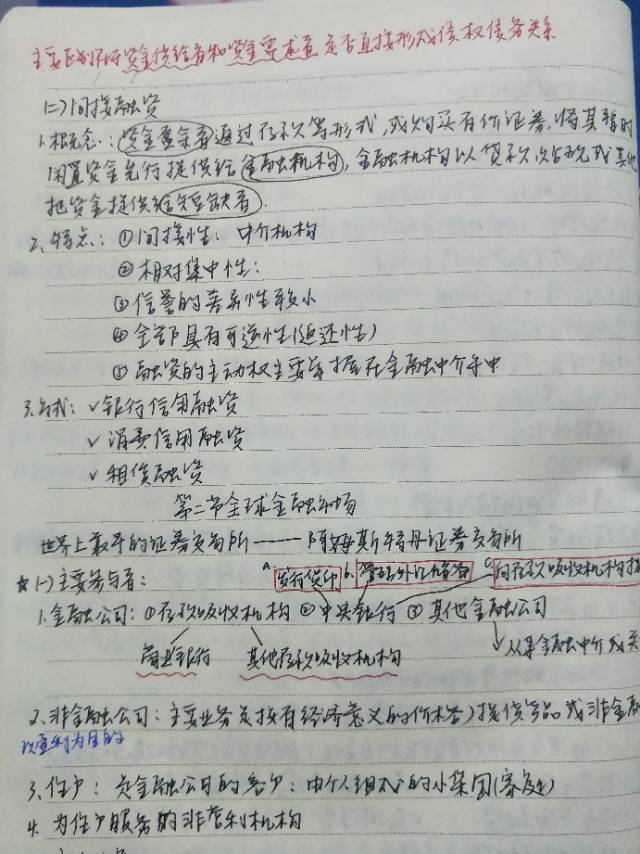 主要区别在资金供给者和资金需求者是否直接形成债权债务关系
(二)间接融资
1.概念:资金盈余者通过存款等形式,或购买有价证券,将其暂时
闲置资金先行提供给金融机构,金融机构以贷款、贴现或其他
把资金提供给短缺者.
2.特点:①间接性:中介机构
②相对集中性:
③信誉的差异性较小
④全部具有可逆性(返还性)
⑤融资的主动权主要掌握在金融中介手中
3.方式:√银行信用融资
√消费信用融资
√租赁融资
第二节全球金融市场
世界上最早的证券交易所——阿姆斯特丹证券交易所
★(一)主要参与者:
a.发行货币 b.管理外汇储备 c.向存款吸收机构提
1.金融公司:①存款吸收机构②中央银行③其他金融公司
商业银行 其他存款吸收机构
从事金融中介或关
2.非金融公司:主要业务是按有经济意义的价格)提供货品或非金融
以营利为目的
3.住户:是金融公司的客户:由个人组成的小集团(家庭)
4.为住户服务的非营利机构